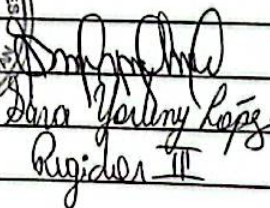 Sara Yoleny López
Regidor III